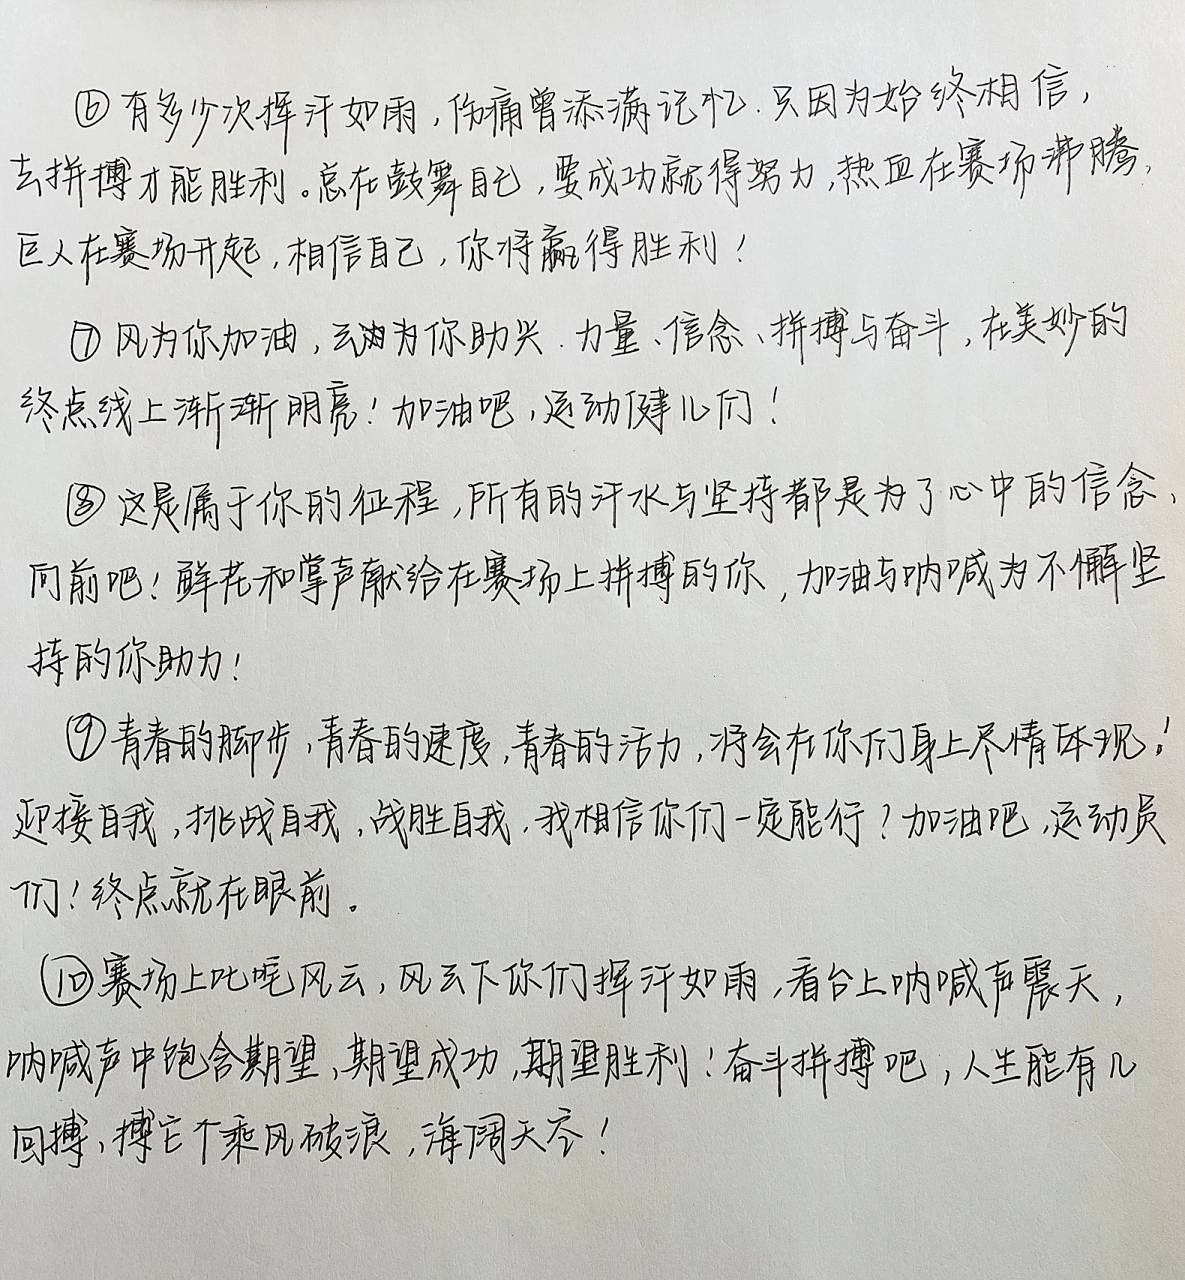 ⑥有多少次挥汗如雨,伤痛曾添满记忆.只因为始终相信,
去拼搏才能胜利。总在鼓舞自己,要成功就得努力,热血在赛场沸腾,
巨人在赛场开起,相信自己,你将赢得胜利!
⑦风为你加油,云为你助兴.力量、信念、拼搏与奋斗,在美妙的
终点线上渐渐明亮!加油吧,运动健儿们!
⑧这是属于你的征程,所有的汗水与坚持都是为了心中的信念、
向前吧!鲜花和掌声献给在赛场上拼搏的你,加油与呐喊为不懈坚
持的你助力!
⑨青春的脚步,青春的速度,青春的活力,将会在你们身上尽情体现!
迎接自我,挑战自我,战胜自我,我相信你们一定能行?加油吧,运动员
们!终点就在眼前。
⑩赛场上叱咤风云,风云下你们挥汗如雨,看台上呐喊声震天,
呐喊声中饱含期望,期望成功,期望胜利!奋斗拼搏吧,人生能有几
回搏,搏它个乘风破浪,海阔天空!